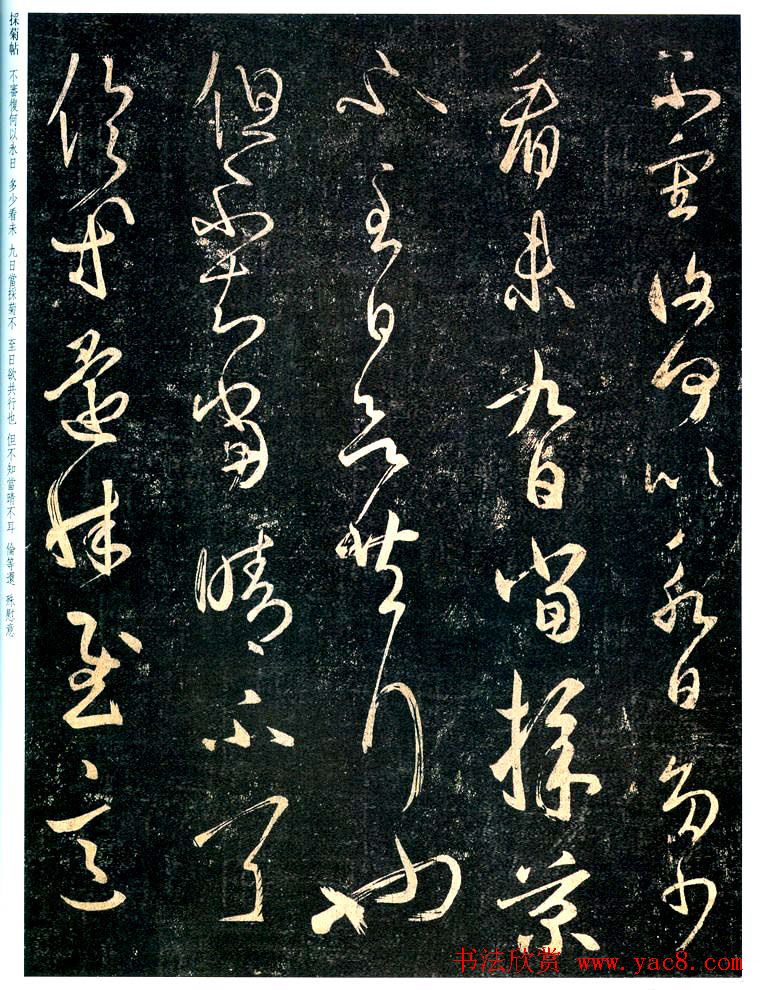 不審復何以永日多少
看未九日當採菊
不至日欲共行也
但不知當晴不耳
倫等還殊慰意
採菊帖 不審復何以永日 多少看未 九日當採菊不 至日欲共行也 但不知當晴不耳 倫等還 殊慰意
书法欣赏 www.yac8.com